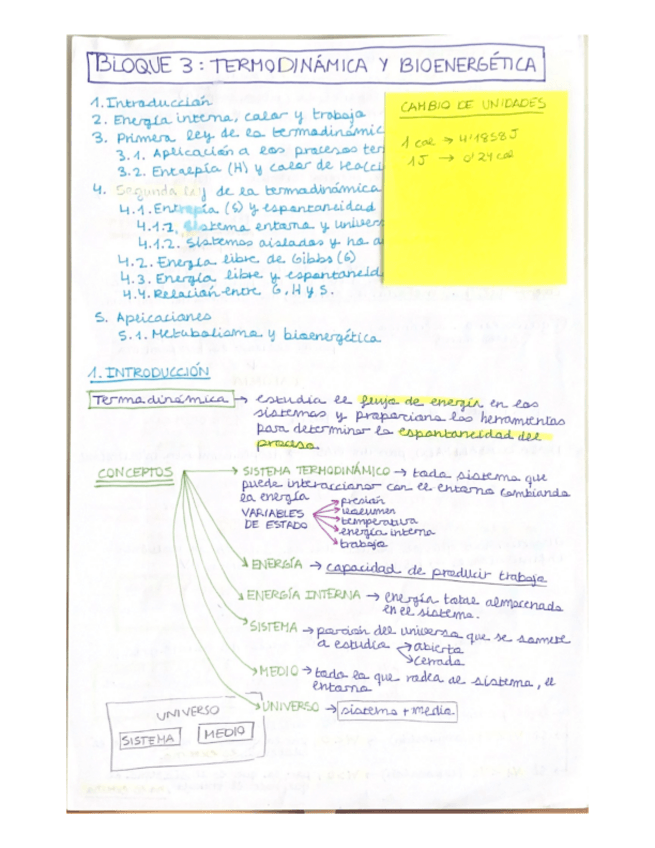 BLOQUE 3: TERMODINÁMICA Y BIOENERGÉTICA
1. Introducción
2. Energía interna, calor y trabajo
3. Primera ley de la termodinámic
3.1. Aplicación a los procesos ter
3.2. Entalpía (H) y calor de reacci
4. Segunda ley de la termodinámica
4.1. Entropía (S) y espontaneidad
4.1.1. Sistema entorno y univers
4.1.2. Sistemas aislados y no a
4.2. Energía libre de Gibbs (G)
4.3. Energía libre y espontaneid
4.4. Relación entre G, H y S.
5. Aplicaciones
5.1. Metabolismo y bioenergética
CAMBIO DE UNIDADES
1 cal → 4'1858 J
1 J → 0'24 cal
1. INTRODUCCIÓN
Termodinámica → estudia el flujo de energía en los
sistemas y proporciona las herramientas
para determinar la espontaneidad del
proceso.
CONCEPTOS → SISTEMA TERMODINÁMICO → todo sistema que
puede interaccionar con el entorno cambiando
la energía
VARIABLES DE ESTADO
→ presión
→ volumen
→ temperatura
→ energía interna
→ trabajo
ENERGÍA → capacidad de producir trabajo
ENERGÍA INTERNA → energía total almacenada
en el sistema.
SISTEMA → porción del universo que se somete
a estudio → abierto
→ cerrado
MEDIO → todo lo que rodea al sistema, el
entorno
UNIVERSO → sistema + medio
UNIVERSO
SISTEMA MEDIO